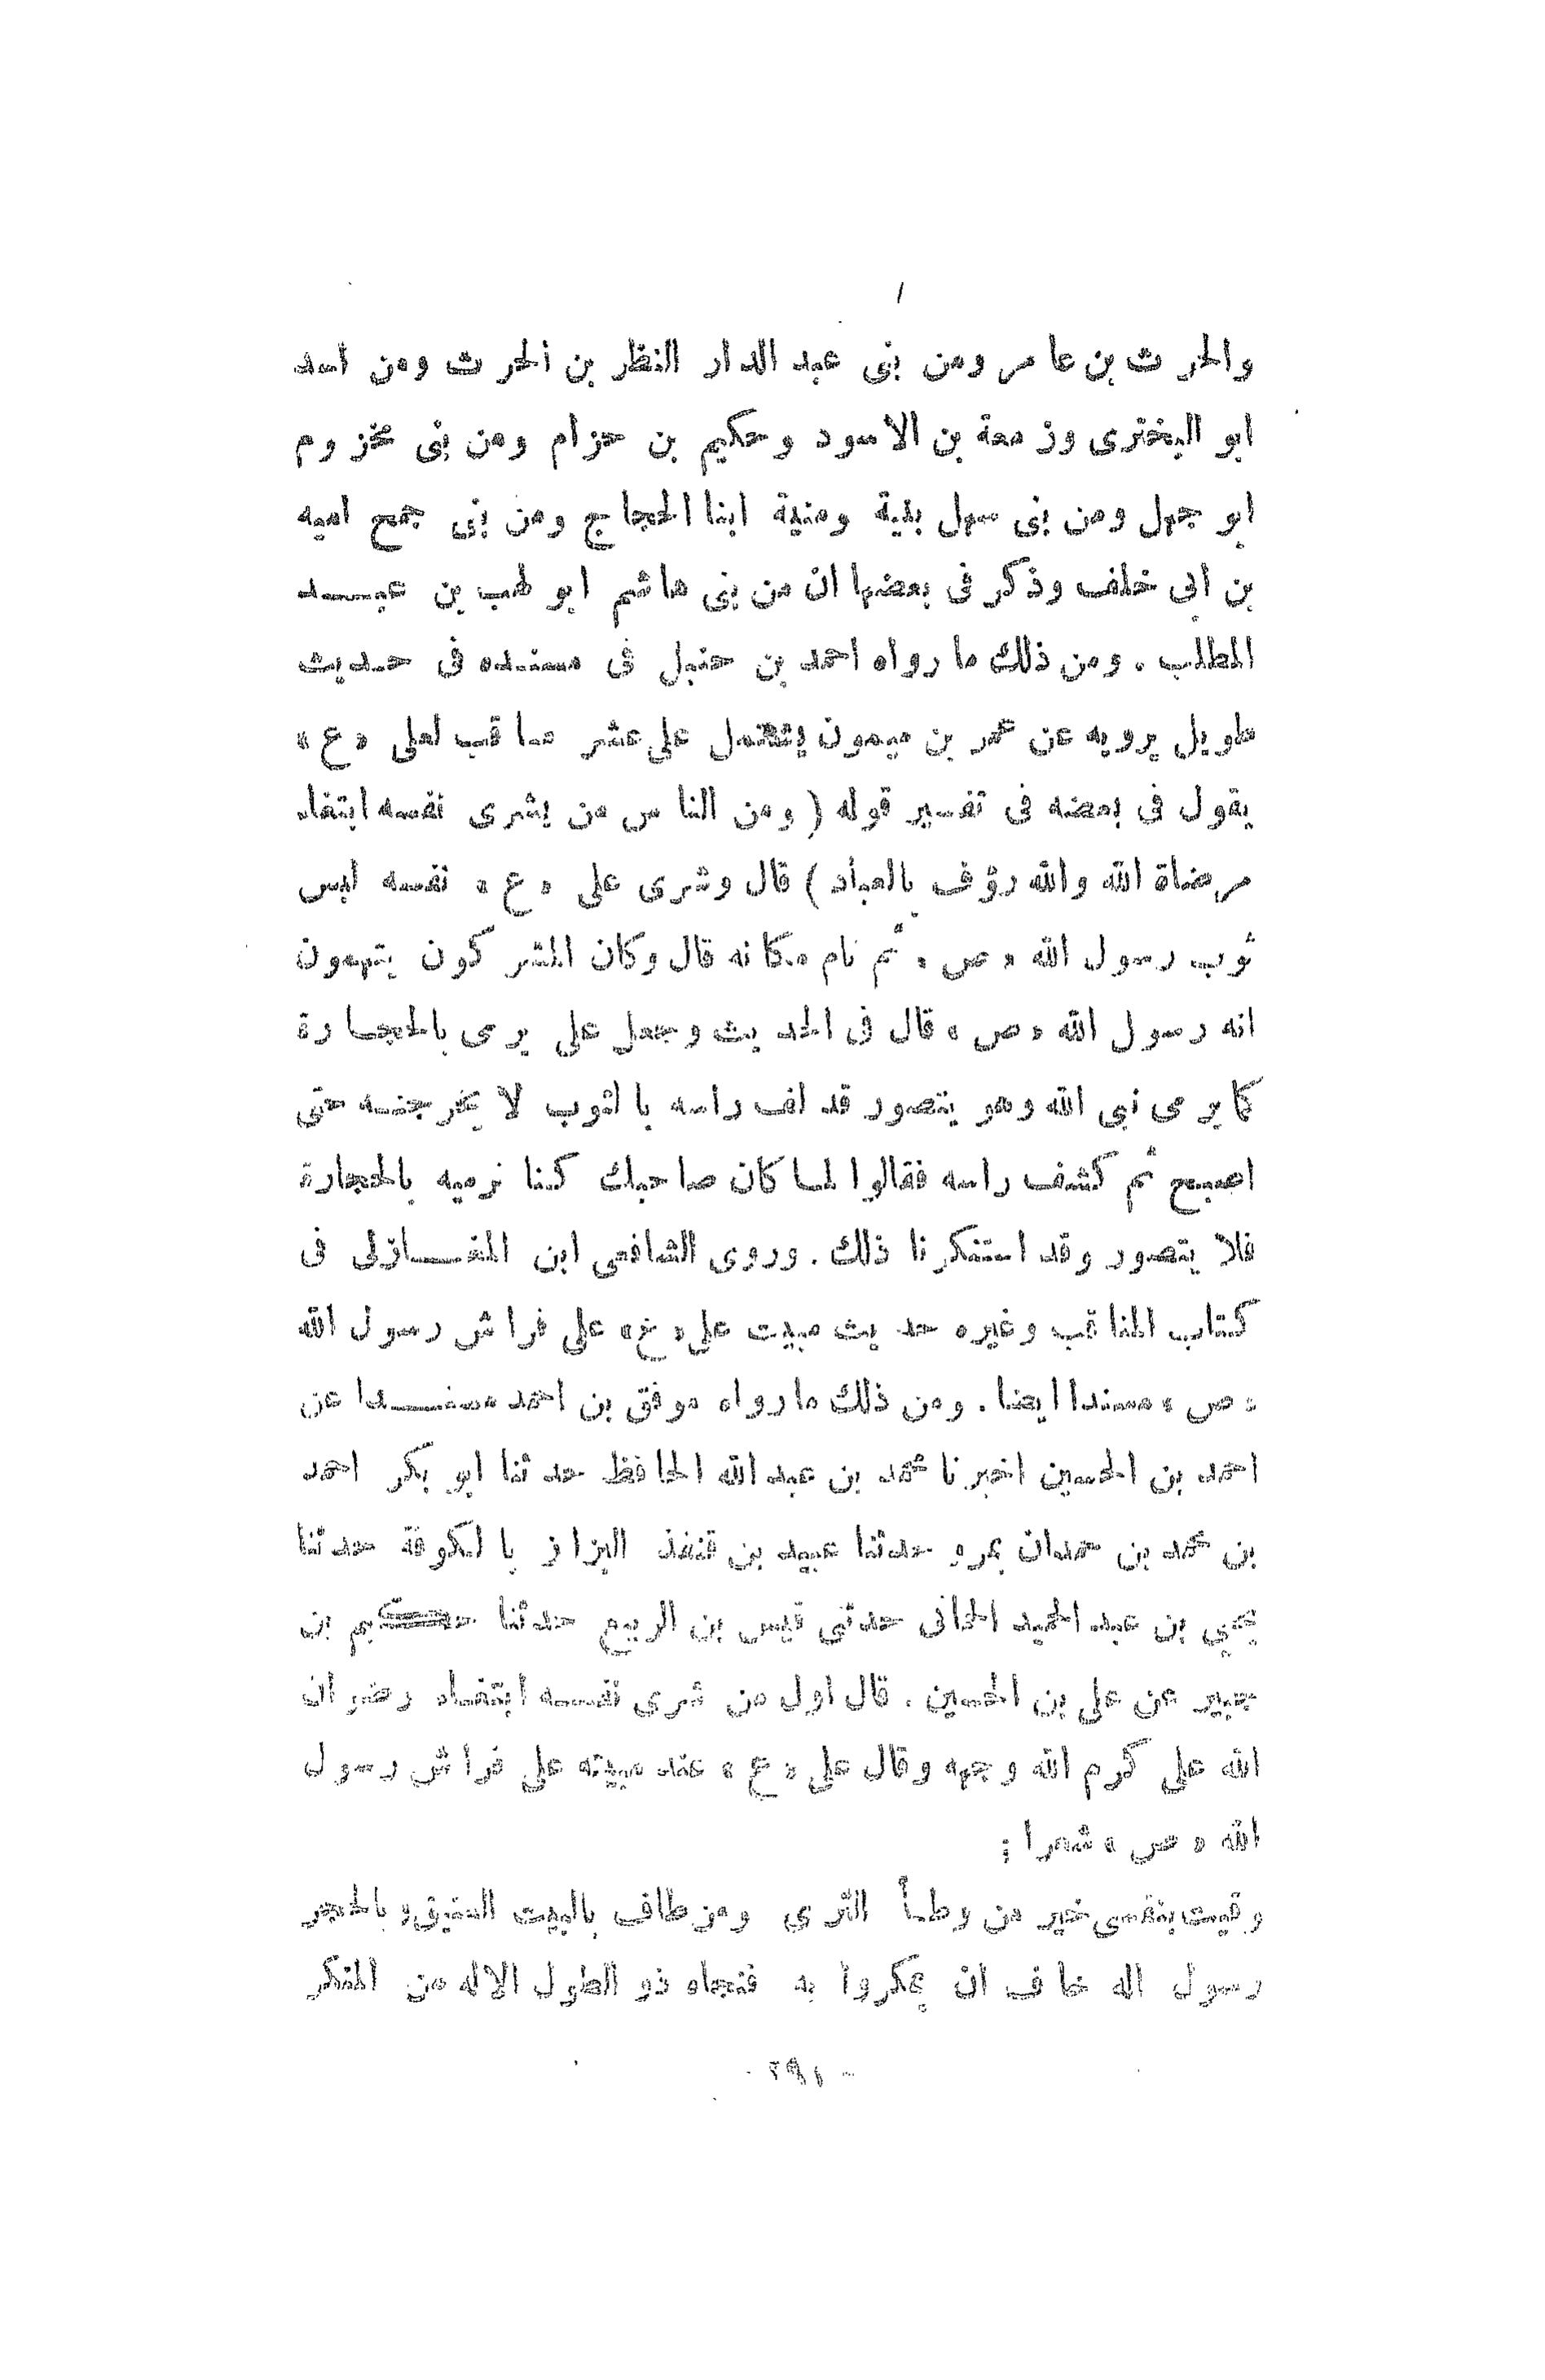 والحرث بن عامر ومن بنى عبد الدار النظر بن الحرث ومن اسد
ابو البخترى وزمعة بن الاسود وحكيم بن حزام ومن بنى مخزوم
ابو جهل ومن بنى سهل بنية ومنية ابنا الحجاج ومن بنى جمح اميه
بن ابى خلف وذكر فى بعضها ان من بنى هاشم ابو لهب بن عبد
المطلب . ومن ذلك ما رواه احمد بن حنبل فى مسنده فى حديث
طويل يرويه عن عمر بن ميمون يشتمل على عشر مناقب لعلى «ع»
يقول فى بعضه فى تفسير قوله ( ومن الناس من يشرى نفسه ابتغاء
مرضاة الله والله رؤف بالعباد ) قال وشرى على «ع» نفسه لبس
ثوب رسول الله «ص» ثم نام مكانه قال وكان المشركون يتهمون
انه رسول الله «ص» قال فى الحديث وجعل على يرمى بالحجارة
كما يرمى نبى الله وهو يتصور قد لف راسه بالثوب لا يخرجنه حتى
اصبح ثم كشف راسه فقالوا لما كان صاحبك كنا نرميه بالحجارة
فلا يتصور وقد استنكرنا ذلك . وروى الشافعى ابن المغازلى فى
كتاب المناقب وغيره حديث مبيت على «ع» على فراش رسول الله
«ص» مسندا ايضا . ومن ذلك ما رواه موفق بن احمد مسندا عن
احمد بن الحسين اخبرنا محمد بن عبد الله الحافظ حدثنا ابو بكر احمد
بن محمد بن حمدان بمرو حدثنا عبيد بن قنفذ البزاز بالكوفة حدثنا
يحيى بن عبد الحميد الحمانى حدثنى قيس بن الربيع حدثنا حكيم بن
جبير عن على بن الحسين . قال اول من شرى نفسه ابتغاء رضوان
الله على كرم الله وجهه وقال على «ع» عند مبيته على فراش رسول
الله «ص» شعرا :
وقيت بنفسى خير من وطأ الثرى ومن طاف بالبيت العتيق وبالحجر
رسول اله خاف ان يمكروا به فنجاه ذو الطول الاله من المكر
- ٢٩١ -